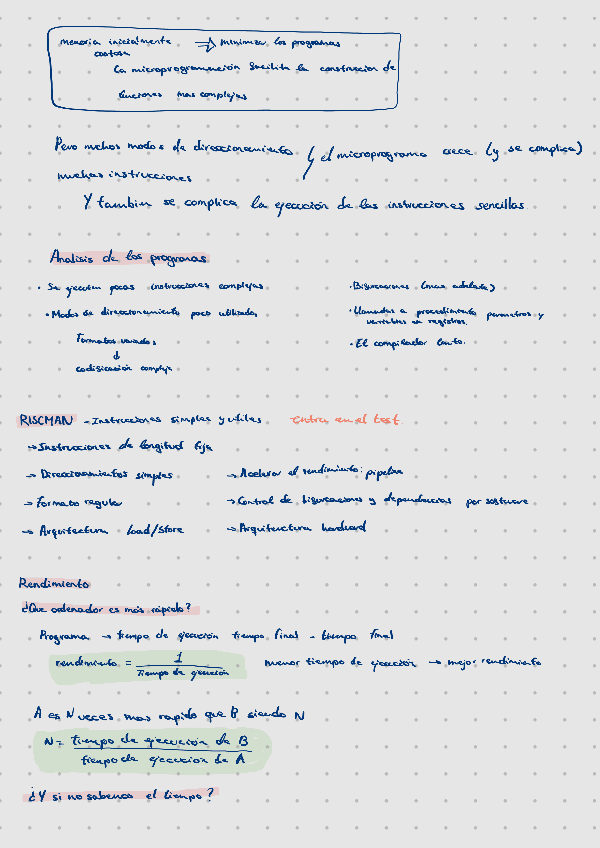 memoria inicialmente → minimizar los programas
costosa
La microprogramación facilita la construccion de
funciones mas complejas
Pero muchos modos de direccionamiento / el microprograma crece (y se complica)
muchas instrucciones
Y tambien se complica la ejecución de las instrucciones sencillas
Analisis de los programas
· Se ejecutan pocas instrucciones complejas
· Modos de direccionamiento poco utilizados
Formatos variados
↓
codificación compleja
· Bifurcaciones (mas adelante)
· Llamadas a procedimiento parametros y
variables en registros.
· El compilador
RISCMAN - Instrucciones simples y utiles entra en el test
→ Instrucciones de longitud fija
→ Direccionamientos simples
→ Formato regular
→ Arquitectura Load/Store
→ Acelerar el rendimiento: pipeline
→ Control de bifurcaciones y dependencias por software
→ Arquitectura
Rendimiento
¿Que ordenador es más rápido?
Programa → tiempo de ejecución tiempo final - tiempo final
rendimiento = 1 / Tiempo de ejecución menor tiempo de ejecución → mejor rendimiento
A es N veces mas rapido que B siendo N
N = tiempo de ejecución de B
tiempo de ejecución de A
¿Y si no sabemos el tiempo?